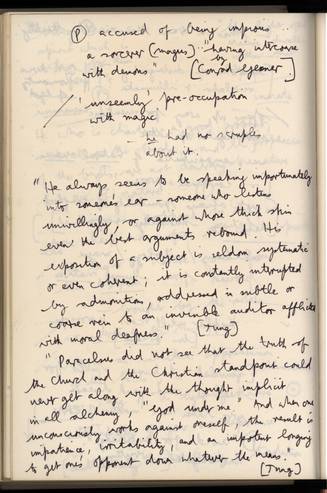 Ⓟ accused of being impious ..
a sorcerer [magus] "having intercourse
with demons" by [Conrad Gesner].
/ 'unseemly' pre-occupation
with magic
- he had no scruples
about it.
"He always seems to be speaking importunately
into someone's ear - someone who listens
unwillingly, or against whose thick skin
even the best arguments rebound. His
exposition of a subject is seldom systematic
or even coherent; it is constantly interrupted
by admonition, addressed in subtle or
coarse vein to an invisible auditor afflicted
with moral deafness." [Jung]
"Parcelsus did not see that the truth of
the Church and the Christian standpoint could
never get along with the thought implicit
in all alchemy, "God under me" And when one
unconsciously works against oneself, the result is
impatience, irritability, and an impotent longing
to get one's opponent down whatever the means."
[Jung]